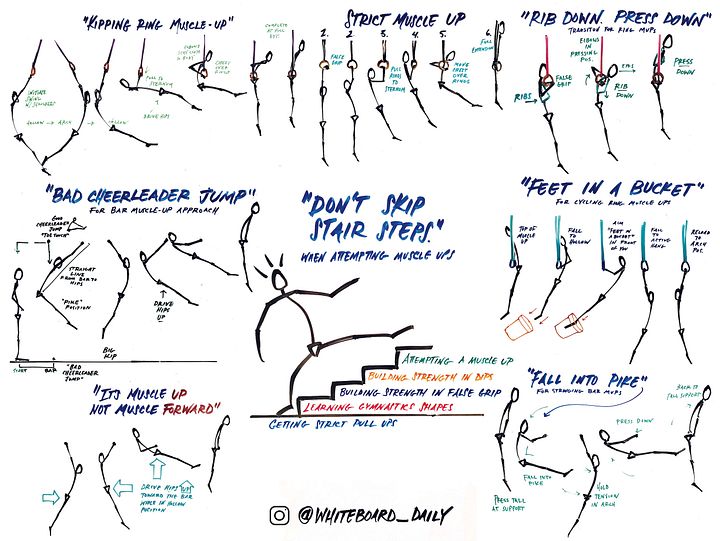 "KIPPING RING MUSCLE-UP"
INITIATE
HOLLOW → ARCH → HOLLOW
PULL TO
STERNUM
DRIVE HIPS
CHEST
OVER
RINGS
COMPLETE
STRICT MUSCLE UP
1.
2.
2.
3.
4.
5.
6.
FALSE
GRIP
PULL
RINGS TO
STERNUM
MOVE CHEST
OVER
RINGS
FULL
EXTENSION
"RIB DOWN. PRESS DOWN"
TRANSITION FOR RING MUPS
ELBOWS
IN
PRESSING
POS.
FALSE
GRIP
RIBS
RIB
DOWN
PRESS
DOWN
"BAD CHEERLEADER JUMP"
FOR BAR MUSCLE-UP APPROACH
GOOD
CHEERLEADER
JUMP
"TOE TOUCH"
STRAIGHT
LINE
FROM BAR TO
HIPS
"PIKE"
POSITION
START
BAR
"BAD
CHEERLEADER
JUMP"
BIG
KIP
DRIVE
HIPS
UP
"DON'T SKIP
STAIR STEPS."
WHEN ATTEMPTING MUSCLE UPS
ATTEMPTING A MUSCLE UP
BUILDING STRENGTH IN DIPS
BUILDING STRENGTH IN FALSE GRIP
LEARNING GYMNASTICS SHAPES
GETTING STRICT PULL UPS
"FEET IN A BUCKET"
FOR CYCLING RING MUSCLE UPS
TOP OF
MUSCLE
UP
FALL
TO
HOLLOW
AIM
"FEET IN
A BUCKET"
IN FRONT
OF YOU
FALL
TO
ACTIVE
HANG
RELOAD
TO
ARCH
POS.
"ITS MUSCLE UP
NOT MUSCLE FORWARD"
DRIVE HIPS UP
TOWARD THE BAR
WHILE IN HOLLOW
POSITION
"FALL INTO PIKE"
FOR STRINGING BAR MUPS
PRESS TALL
AT SUPPORT
FALL INTO
PIKE
PRESS DOWN
HOLD
TENSION
IN ARCH
BACK TO
TALL SUPPORT
@WHITEBOARD_DAILY